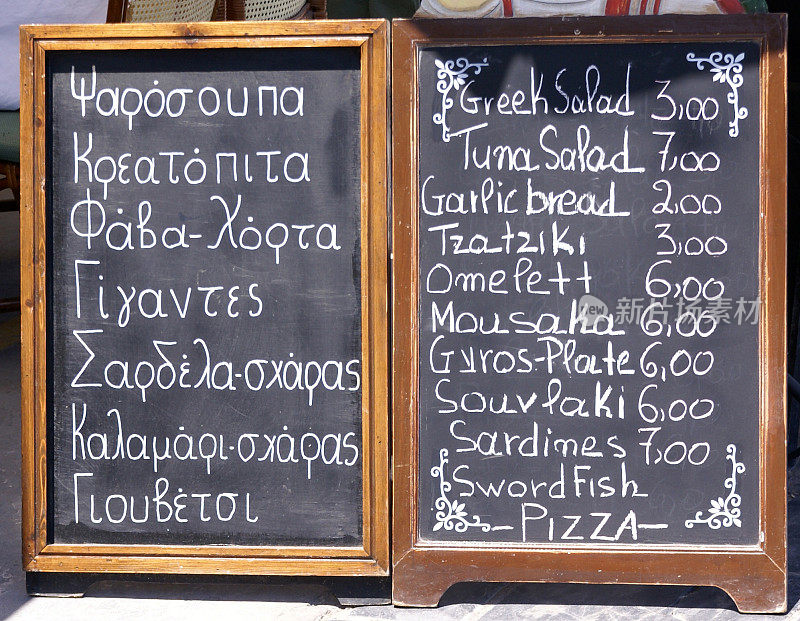 Ψαρόσουπα
Κρεατόπιτα
Φάβα-Χόρτα
Γίγαντες
Σαρδέλα-σχάρας
Καλαμάρι-σχάρας
Γιουβέτσι
Greek Salad 3,00
Tuna Salad 7,00
Garlic bread 2,00
Tzatziki 3,00
Omelett 6,00
Mousaka 6,00
Gyros-Plate 6,00
Souvlaki 6,00
Sardines 7,00
SwordFish
-PIZZA-
new 新片场素材